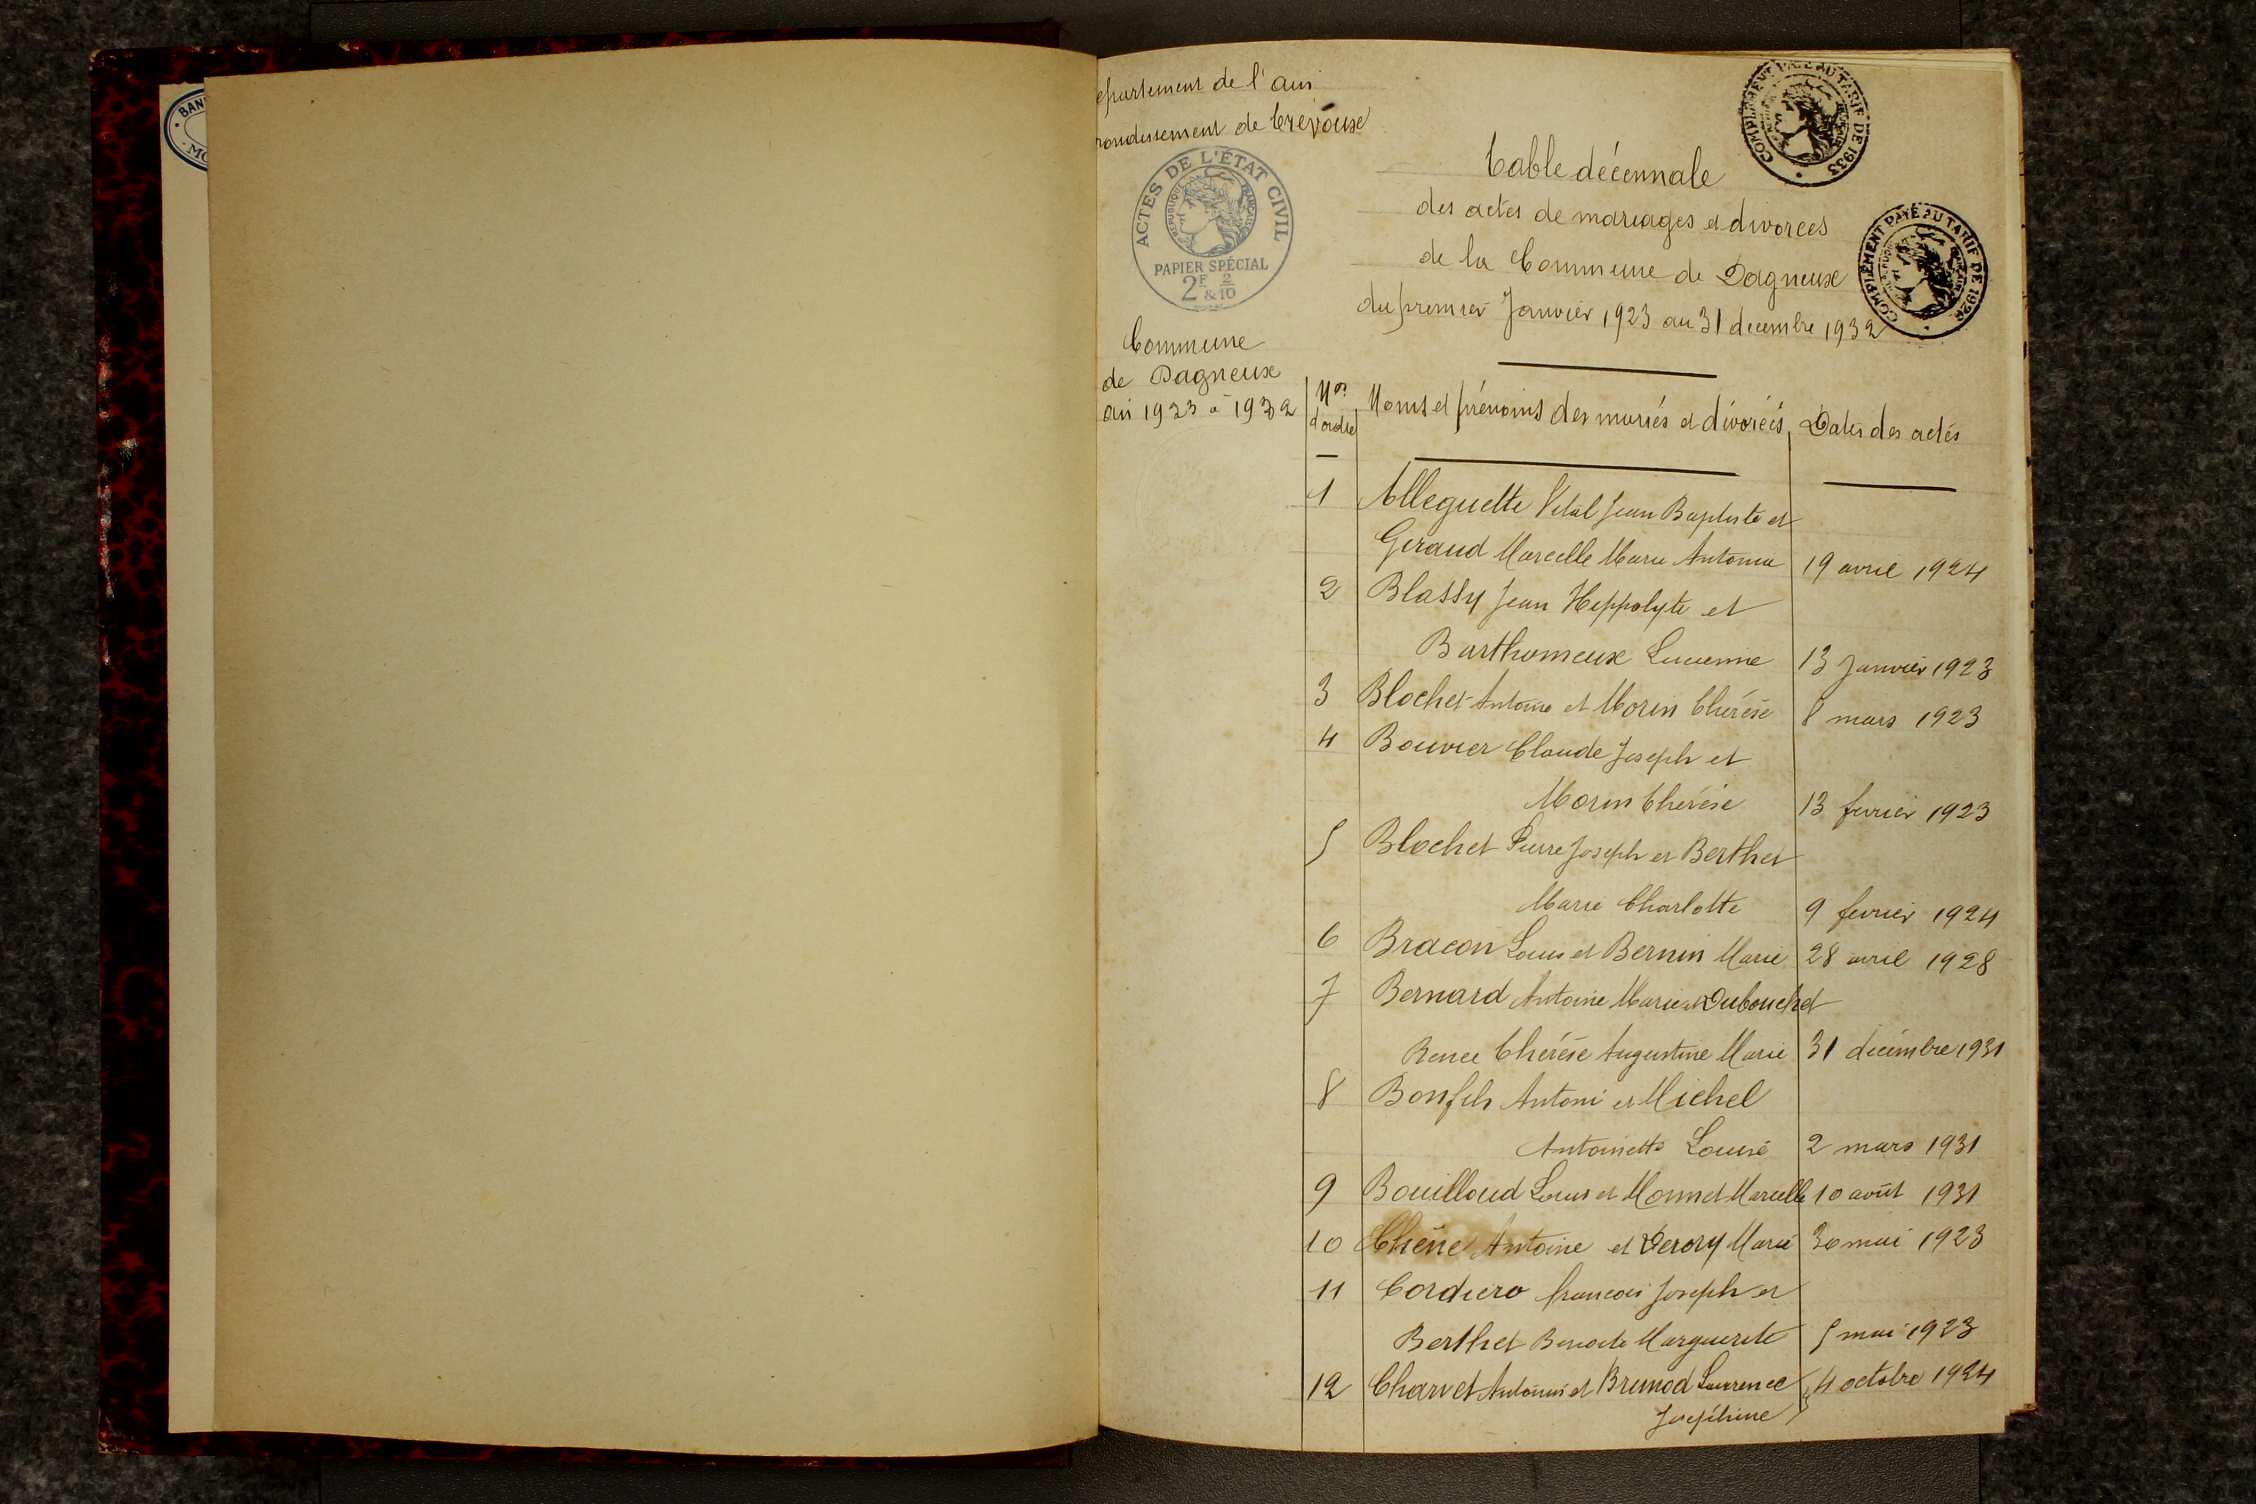 BAN
MO
epartement de l'ain
rondissement de Trévoux
ACTES DE L'ÉTAT CIVIL
REPUBLIQUE FRANÇAISE
PAPIER SPÉCIAL
2F & 2/10
Commune
de Dagneux
ain 1923 à 1932
COMPLÉMENT PAYÉ AU TARIF DE 1933
Table décennale
des actes de mariages et divorces
de la Commune de Dagneux
COMPLÉMENT PAYÉ AU TARIF DE 1926
du premier Janvier 1923 au 31 decembre 1932
Nos d'ordre Noms et prénoms des mariés et divorcés Dates des actes
1 Alleguette Vital Jean Baptiste et
Geraud Marcelle Marie Antonia 19 avril 1924
2 Blassy Jean Hippolyte et
Barthomeux Lucienne 13 Janvier 1923
3 Blochet Antoine et Morin Thérèse 8 mars 1923
4 Bouvier Claude Joseph et
Morin Thérèse 13 fevrier 1923
5 Blochet Pierre Joseph et Berthet
Marie Charlotte 9 fevrier 1924
6 Bracon Louis et Bernin Marie 28 avril 1928
7 Bernard Antoine Marie et Dubouchet
Renee Thérèse Augustine Marie 31 décembre 1931
8 Bonfils Antoni et Michel
Antoinette Louise 2 mars 1931
9 Bouilloud Louis et Monnet Marcelle 10 août 1931
10 Chêne Antoine et Derory Marie 30 mai 1923
11 Cordiero francois Joseph et
Berthet Benoite Marguerite 5 mai 1923
12 Charvet Antonin et Brunod Laurence 4 octobre 1924
Joséphine